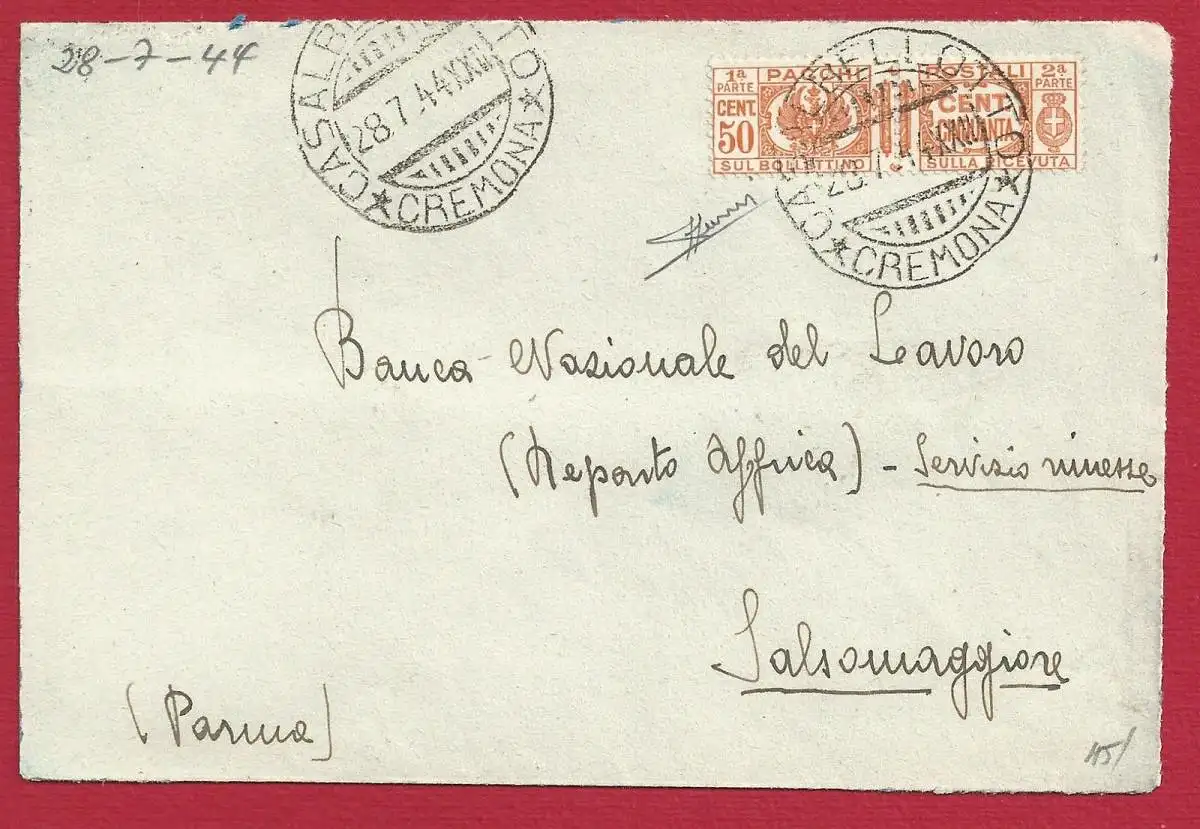 28-7-44
CASALB
28.7.44XXII
★ CREMONA ★
1ª PARTE PACCHI POSTALI 2ª PARTE
CENT. 50 CENT. CINQUANTA
SUL BOLLETTINO SULLA RICEVUTA
28.7.44XXII
★ CREMONA ★
Banca Nazionale del Lavoro
(Reparto Affrica) - Servizio rimesse
Salsomaggiore
(Parma)